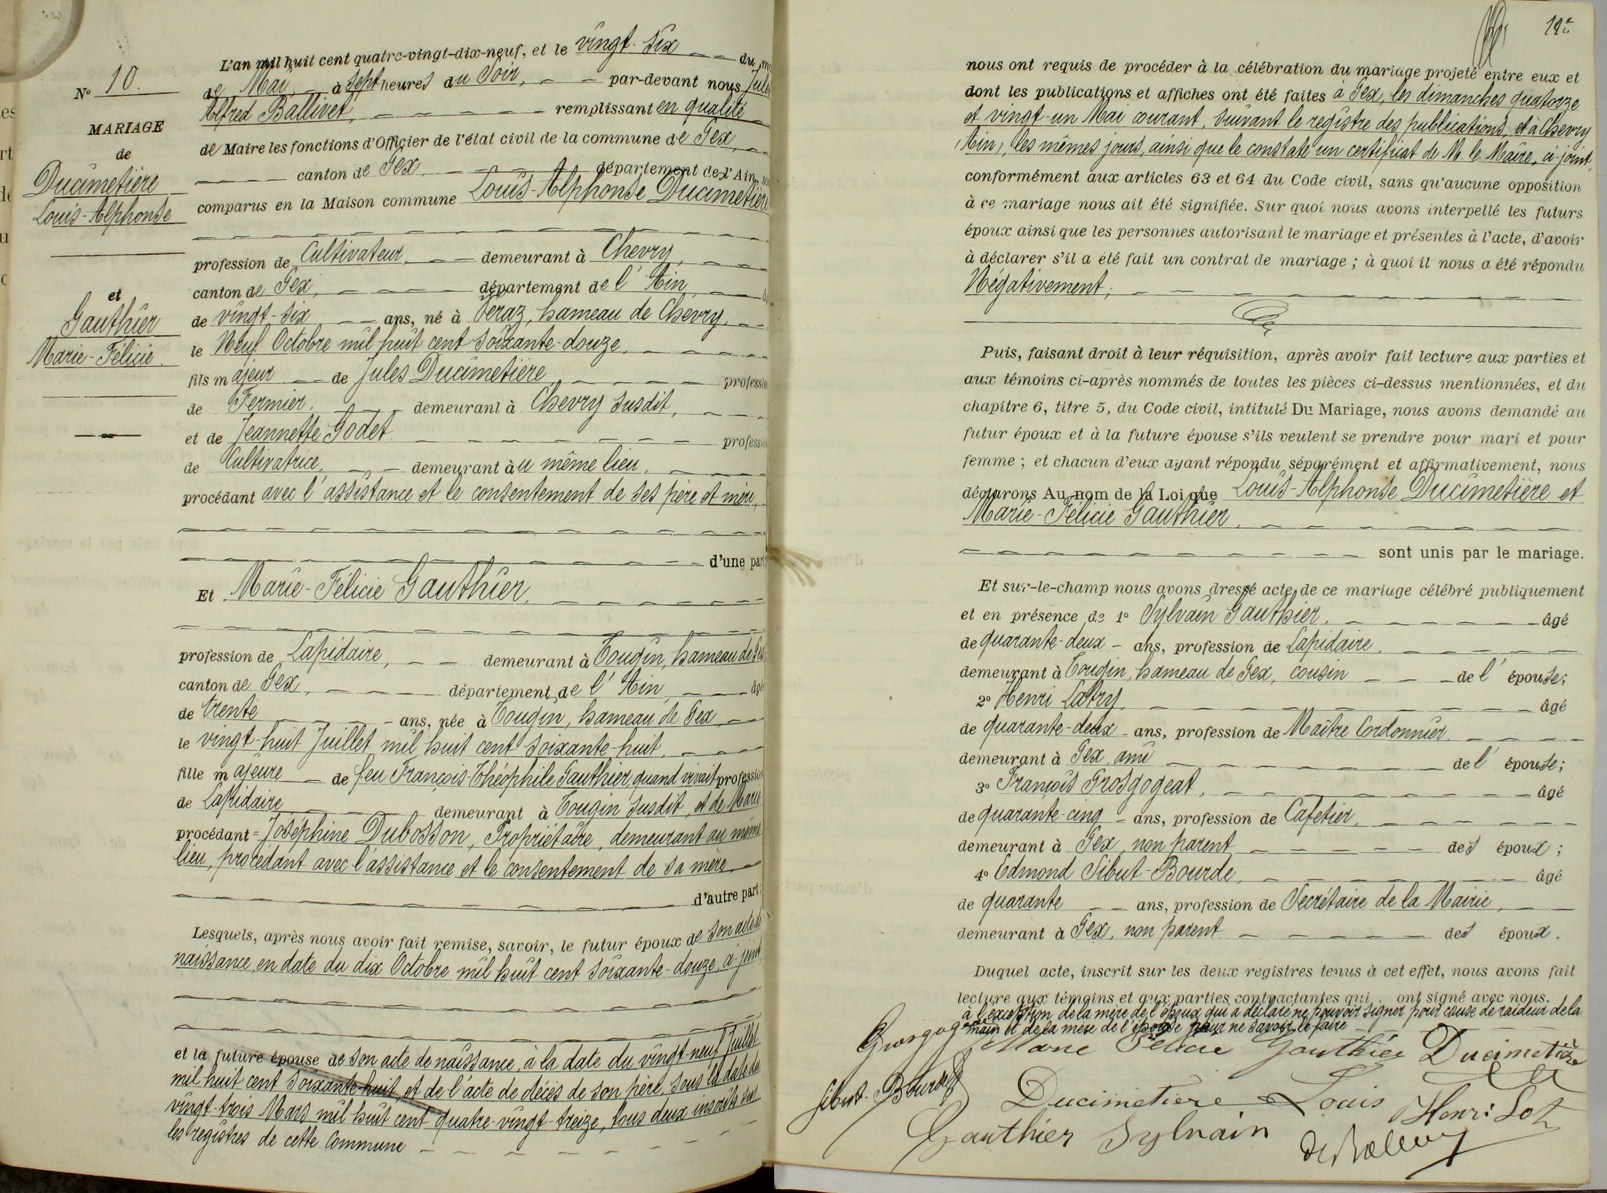 N° 10.
MARIAGE
de
Ducimetière
Louis-Alphonse
et
Gauthier
Marie-Félicie.
L'an mil huit cent quatre-vingt-dix-neuf, et le vingt-six du
de Mai, à sept heures du Soir, par-devant nous Jules
Alfred Ballivet, remplissant en qualité
de Maire les fonctions d'Officier de l'état civil de la commune de Gex,
canton de Gex, département de l'Ain,
comparus en la Maison commune Louis-Alphonse Ducimetière
profession de Cultivateur, demeurant à Chevry,
canton de Gex, département de l'Ain,
de vingt-six ans, né à Véraz, hameau de Chevry,
le Neuf Octobre mil huit cent soixante-douze,
fils majeur de Jules Ducimetière, profession
de Fermier, demeurant à Chevry susdit,
et de Jeannette Godet profession
de Cultivatrice, demeurant au même lieu,
procédant avec l'assistance et le consentement de ses père et mère,
d'une part
Et Marie-Félicie Gauthier.
profession de Lapidaire, demeurant à Tougin, hameau de Gex
canton de Gex, département de l'Ain âgé
de trente ans, née à Tougin, hameau de Gex
le vingt-huit Juillet mil huit cent soixante-huit,
fille majeure de feu François-Théophile Gauthier, quand vivait profession
de Lapidaire demeurant à Tougin susdit, et de Marie
procédant = Joséphine Dubosson, Propriétaire, demeurant au même
lieu, procédant avec l'assistance et le consentement de sa mère.
d'autre part;
Lesquels, après nous avoir fait remise, savoir, le futur époux de son acte de
naissance en date du dix Octobre mil huit cent soixante-douze, ci-joint
et la future épouse de son acte de naissance à la date du vingt-neuf Juillet
mil huit cent soixante-huit et de l'acte de décès de son père, sous la date du
vingt-trois Mars mil huit cent quatre-vingt-treize, tous deux inscrits sur
les registres de cette Commune
nous ont requis de procéder à la célébration du mariage projeté entre eux et
dont les publications et affiches ont été faites à Gex, les dimanches quatorze
et vingt-un Mai courant, suivant le registre des publications, et à Chevry
(Ain), les mêmes jours, ainsi que le constate un certificat de M. le Maire, ci-joint,
conformément aux articles 63 et 64 du Code civil, sans qu'aucune opposition
à ce mariage nous ait été signifiée. Sur quoi nous avons interpellé les futurs
époux ainsi que les personnes autorisant le mariage et présentes à l'acte, d'avoir
à déclarer s'il a été fait un contrat de mariage ; à quoi il nous a été répondu
Négativement;
Puis, faisant droit à leur réquisition, après avoir fait lecture aux parties et
aux témoins ci-après nommés de toutes les pièces ci-dessus mentionnées, et du
chapitre 6, titre 5, du Code civil, intitulé Du Mariage, nous avons demandé au
futur époux et à la future épouse s'ils veulent se prendre pour mari et pour
femme ; et chacun d'eux ayant répondu séparément et affirmativement, nous
déclarons Au nom de la Loi que Louis-Alphonse Ducimetière et
Marie-Félicie Gauthier.
sont unis par le mariage.
Et sur-le-champ nous avons dressé acte de ce mariage célébré publiquement
et en présence de 1° Sylvain Gauthier, âgé
de quarante-deux ans, profession de Lapidaire,
demeurant à Tougin, hameau de Gex, cousin de l'épouse;
2° Henri âgé
de quarante-deux ans, profession de Maître Cordonnier
demeurant à Gex, ami de l'épouse;
3° François Grosgogeat, âgé
de quarante-cinq ans, profession de Cafetier,
demeurant à Gex, non parent des époux ;
4° Edmond Sibut-Bourde, âgé
de quarante ans, profession de Secrétaire de la Mairie,
demeurant à Gex, non parent des époux.
Duquel acte, inscrit sur les deux registres tenus à cet effet, nous avons fait
lecture aux témoins et aux parties contractantes qui ont signé avec nous.
à l'exception de la mère de l'époux qui a déclaré ne pouvoir signer pour cause de raideur de la
main et de la mère de l'épouse pour ne savoir le faire
Marie Félicie Gauthier Ducimetière
Sibut-Bourde Ducimetière Louis Henri
Gauthier Sylvain